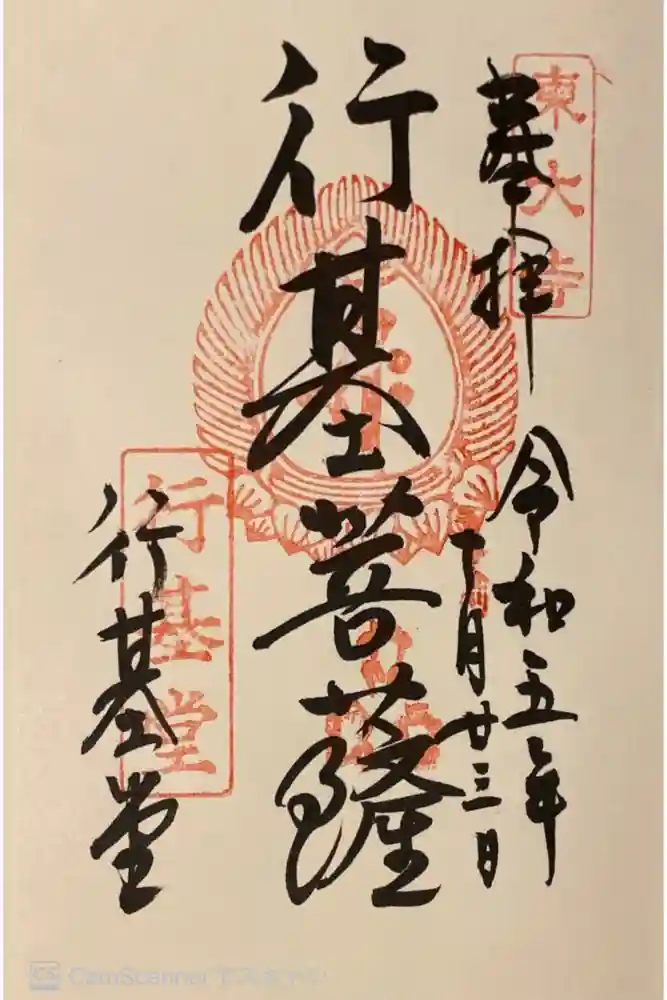 東大寺
奉拝
令和五年
月廿三日
行基菩薩
行基堂
行基堂
CS CamScanner でスキャン